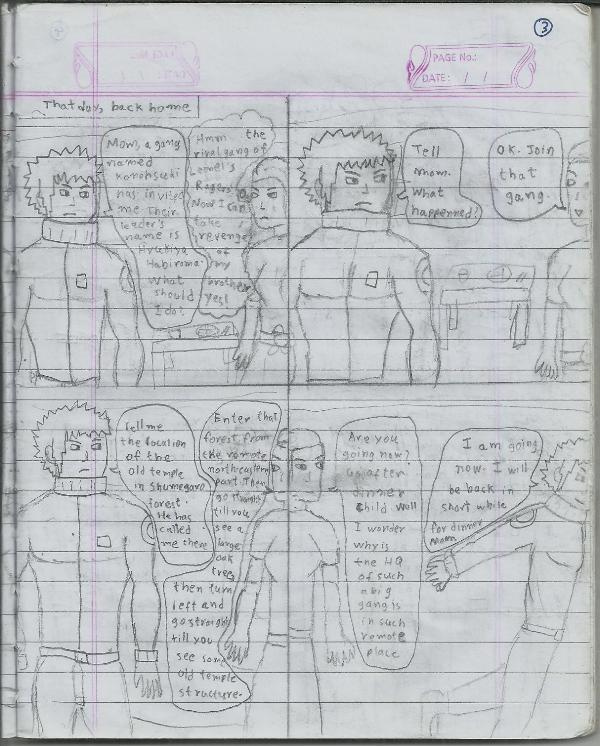 3
PAGE No.:
DATE: / /
That day, back home
Mom, a gang
named
Korohsuki
has invited
me. Their
leader's
name is
Hyukiya
Habiroma.
What
should
I do?
Hmm the
rival gang of
Leonel's
Rogers
Now I can
take
revenge
of
my
brother
yes!
Tell
mom.
What
happenned?
OK. Join
that
gang.
Tell me
the location
of the
old temple
in Shumegaro
forest.
He has
called
me there
Enter that
forest from
the remote
northeastern
part. Then
go straight
till you
see a
large
oak
tree,
then turn
left and
go straight
till you
see some
old temple
structure.
Are you
going now?
Go after
dinner
child. Well
I wonder
why is
the HQ
of such
a big
gang is
in such
remote
place
I am going
now. I will
be back in
short while
for dinner
Mom